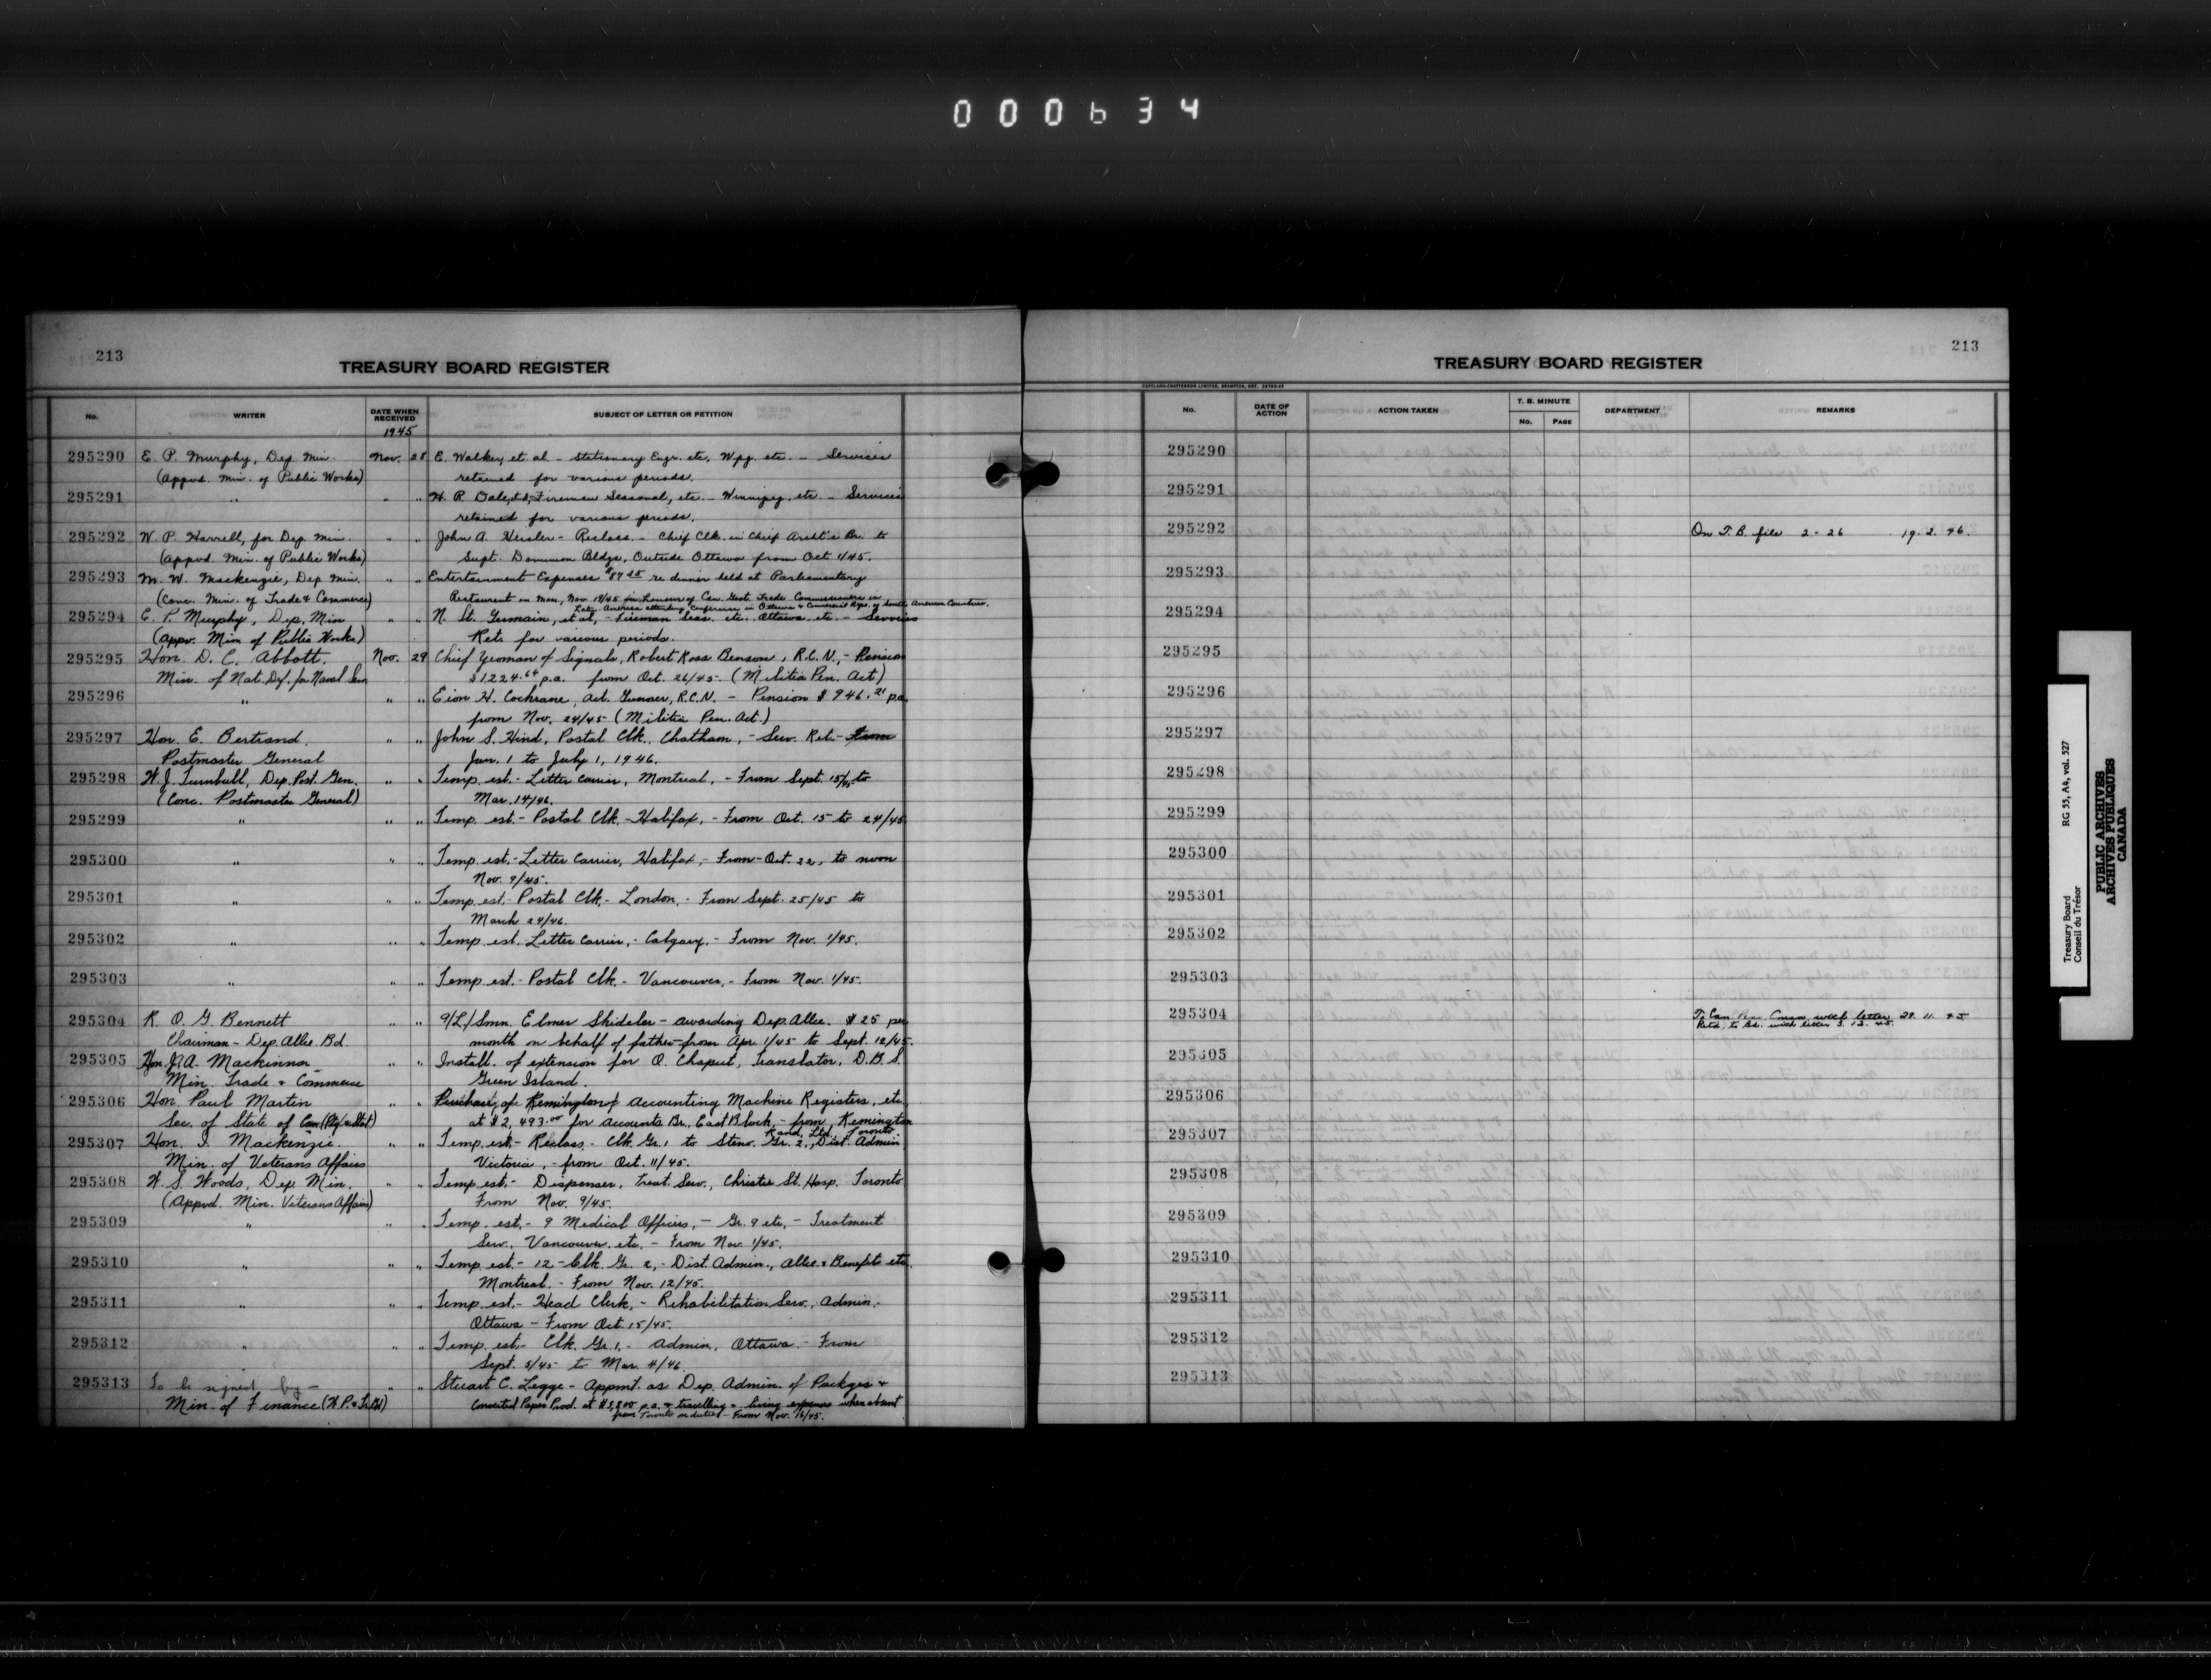 000634
213
TREASURY BOARD REGISTER
No.
WRITER
DATE WHEN RECEIVED
SUBJECT OF LETTER OR PETITION
1945
295290 E. P. Murphy, Dep. Min. Nov. 28 E. Walker, et. al. - Stationary Engr. etc, Wpg. etc. - Services
(Appvd. Min. of Public Works) retained for various periods.
295291 " " " H. R. Dale, et al, Firemen Seasonal, etc. - Winnipeg, etc. - Services
retained for various periods.
295292 W. P. Harrell, for Dep. Min. " " John A. - Reclass. - Chief Clk. in Chief Archt's Br. to
(Appvd. Min. of Public Works) Supt. Dominion Bldgs, Outside Ottawa from Oct 1/45.
295293 M. W. Mackenzie, Dep. Min. " " Entertainment Expenses re dinner held at Parliamentary
(Conc. Min. of Trade & Commerce) Restaurant on Mon, Nov 19/45 in honour of Can. Govt. Trade Commissioners in
Latin America attending Conference in Ottawa & Commercial Reps. of South American Countries.
295294 E. P. Murphy, Dep. Min " " N. St. Germain, et al, - Fireman Seas. etc. Ottawa, etc. - Services
(Appv. Min of Public Works) Ret. for various periods.
295295 Hon. D. C. Abbott. Nov. 29 Chief Yeoman of Signals, Robert Ross Benson, R.C.N., - Pension
Min. of Nat. Def. for Naval Serv. $1224.64 p.a. from Oct. 26/45. (Militia Pen. Act)
295296 " " " Eion H. Cochrane, Act. Gunner, R.C.N. - Pension $946.21 p.a.
from Nov. 24/45 (Militia Pen. Act.)
295297 Hon. E. Bertrand, " " John S. Hind, Postal Clk. Chatham, - Serv. Ret. - From
Postmaster General Jan. 1 to July 1, 1946.
295298 W. J. Turnbull, Dep. Post. Gen. " " Temp. est. - Letter Carrier, Montreal, - From Sept. 15/45 to
(Conc. Postmaster General) Mar. 14/46.
295299 " " " Temp. est. - Postal Clk. - Halifax, - From Oct. 15 to 24/45
295300 " " " Temp. est. - Letter Carrier, Halifax, - From - Oct. 22, to noon
Nov. 9/45.
295301 " " " Temp. est. - Postal Clk. - London, - From Sept. 25/45 to
March 24/46.
295302 " " " Temp. est. Letter Carrier, - Calgary, - From Nov. 1/45.
295303 " " " Temp. est. - Postal Clk. - Vancouver, - From Nov. 1/45.
295304 R. O. G. Bennett " " Elmer Shideler - awarding Dep. Allce. $25 per
Chairman - Dep. Allce. Bd. month on behalf of father - from Apr. 1/45 to Sept. 12/45.
295305 Hon. J. A. Mackinnon " " Install. of extension for O. Chaput, Translator, D.B.S.
Min. Trade & Commerce Green Island.
295306 Hon. Paul Martin " " Purchase of Remington Accounting Machine Registers, etc.
Sec. of State of Can. at $2,493.00 for Accounts Br., East Block, - from Remington
Rand, Ltd. Toronto
295307 Hon. I. Mackenzie. " " Temp. est. - Reclass. - Clk. Gr. 1 to Steno. Gr. 2, Dist. Admin
Min. of Veterans Affairs Victoria, - from Oct. 11/45.
295308 W. S. Woods, Dep. Min. " " Temp. est. - Dispenser, Treat. Serv., Christie St. Hosp. Toronto
(Appvd. Min. Veterans Affairs) From Nov. 9/45.
295309 " " " Temp. est. - 9 Medical Officers, - Gr. 9 etc, - Treatment
Serv., Vancouver. etc. - From Nov. 1/45.
295310 " " " Temp. est. - 12 - Clk. Gr. 2, - Dist. Admin., Allce. & Benefits etc.
Montreal. - From Nov. 12/45.
295311 " " " Temp. est. - Head Clerk, - Rehabilitation Serv., Admin. -
Ottawa - From Oct. 15/45.
295312 " " " Temp. est. - Clk. Gr. 1. - Admin., Ottawa. - From
Sept. 5/45 to Mar. 4/46.
295313 To be signed by - " " Stuart C. Legge - Appmt. as Dep. Admin. of Packges &
Min. of Finance Converted Paper Prod. at p.a. & travelling & living expenses when absent
from Toronto on duties - From Nov. 16/45.
213
TREASURY BOARD REGISTER
COPELAND-CHATTERSON LIMITED, BRAMPTON, ONT.
No.
DATE OF ACTION
ACTION TAKEN
T. B. MINUTE
No. PAGE
DEPARTMENT
REMARKS
295290
295291
295292 On T. B. file 2-26 19. 2. 46.
295293
295294
295295
295296
295297
295298
295299
295300
295301
295302
295303
295304 To Can. Pen. Cmsn. with letter 29. 11. 45
Retd. to Bd. with letter 3. 12. 45.
295305
295306
295307
295308
295309
295310
295311
295312
295313
Treasury Board RG 55, A4, vol. 527
Conseil du Trésor
PUBLIC ARCHIVES
ARCHIVES PUBLIQUES
CANADA